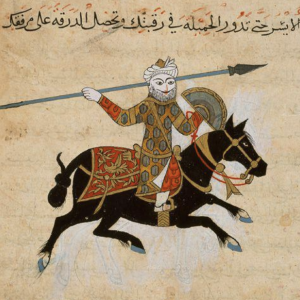 الايسر حتى تدور الحميله في رقبتك وتحصل الدرقه على مرفقك